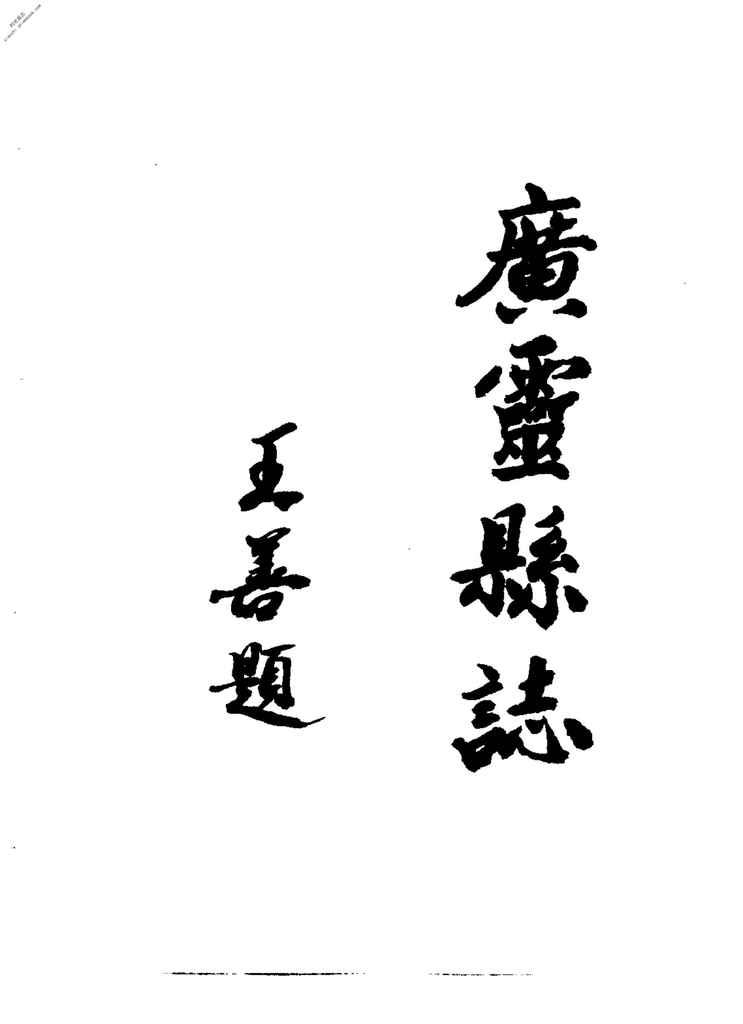 廣靈縣誌
王善題